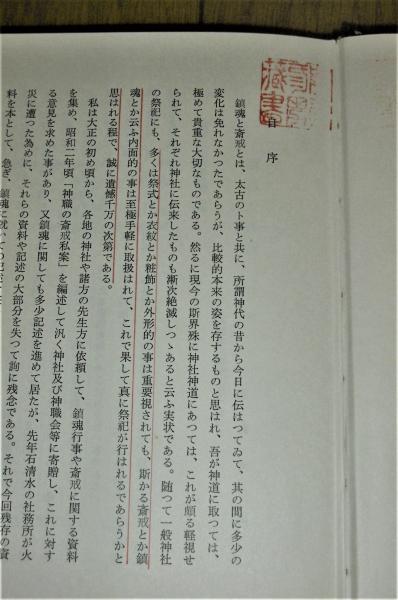 自序
鎮魂と斎戒とは、太古のト事と共に、所謂神代の昔から今日に伝はつてゐて、其の間に多少の
変化は免れなかつたであらうが、比較的本来の姿を存するものと思はれ、吾が神道に取つては、
極めて貴重な大切なものである。然るに現今の斯界殊に神社神道にあつては、これが頗る軽視せ
られて、それぞれ神社に伝来したものも漸次絶滅しつゝあると云ふ実状である。随つて一般神社
の祭祀にも、多くは祭式とか衣紋とか粧飾とか外形的の事は重要視されても、斯かる斎戒とか鎮
魂とか云ふ内面的の事は至極手軽に取扱はれて、これで果して真に祭祀が行はれるであらうかと
思はれる程で、誠に遺憾千万の次第である。
私は大正の初め頃から、各地の神社や諸方の先生方に依頼して、鎮魂行事や斎戒に関する資料
を集め、昭和二年頃「神職の斎戒私案」を編述して汎く神社及び神職会等に寄贈し、これに対す
る意見を求めた事があり、又鎮魂に関しても多少記述を進めて居たが、先年石清水の社務所が火
災に遭つた為めに、それらの資料や記述の大部分を失つて詢に残念である。それで今回残存の資
料を本として、急ぎ、鎮魂に就いての